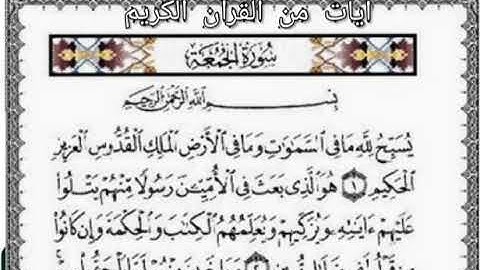 آيات من القرآن الكريم
سُورَةُ الجُمُعَةِ
بِسْمِ اللَّهِ الرَّحْمَٰنِ الرَّحِيمِ
يُسَبِّحُ لِلَّهِ مَا فِي السَّمَٰوَٰتِ وَمَا فِي الْأَرْضِ الْمَلِكِ الْقُدُّوسِ الْعَزِيزِ
الْحَكِيمِ ١ هُوَ الَّذِي بَعَثَ فِي الْأُمِّيِّـۧنَ رَسُولًا مِّنْهُمْ يَتْلُوا
عَلَيْهِمْ ءَايَٰتِهِ وَيُزَكِّيهِمْ وَيُعَلِّمُهُمُ الْكِتَٰبَ وَالْحِكْمَةَ وَإِن كَانُوا